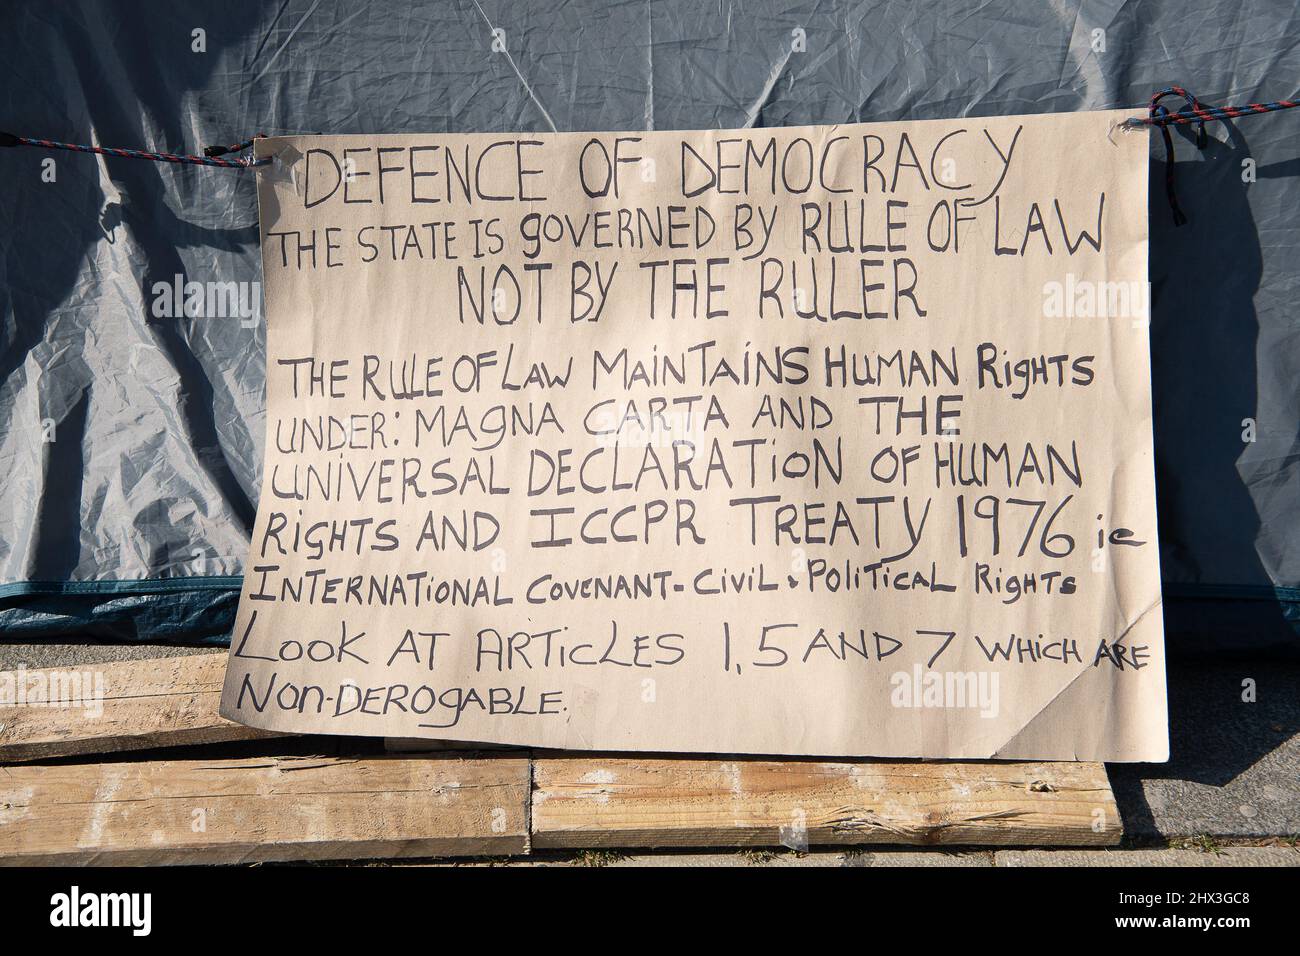 DEFENCE OF DEMOCRACY
THE STATE IS gOVERNED BY RULE OF LAW
NOT BY THE RULER
THE RULE OF LAW MAINTAINS HUMAN RIGHTS
UNDER: MAGNA CARTA AND THE
UNIVERSAL DECLARATION OF HUMAN
RIGHTS AND ICCPR TREATY 1976 ie
INTERNATIONAL COVENANT - CIVIL & POLITICAL RIGHTS
LOOK AT ARTICLES 1, 5 AND 7 WHICH ARE
NON-DEROGABLE.
alamy
Image ID: 2HX3GC8
www.alamy.com